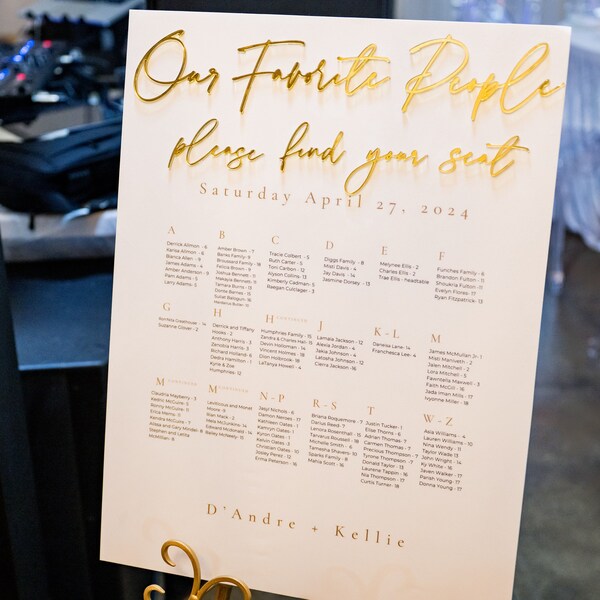 Our Favorite People
please find your seat
Saturday April 27, 2024
A
Derrick Allmon - 6
Karisa Allmon - 6
Bianca Allen - 8
James Adams - 4
Amber Anderson - 9
Pam Adams - 5
Larry Adams - 5
B
Amber Brown - 7
Banks Family - 8
Broussard Family - 18
Felicia Brown - 9
Joshua Bennett - 11
Makayla Bennett - 11
Tamara Burris - 13
Dante Barnes - 15
C
Tracie Colbert - 5
Ruth Carter - 5
Toni Carlton - 12
Alyson Collins - 13
Kimberly Cadman - 5
Raegan Colclager - 3
D
Diggs Family - 8
Misti Davis - 4
Jay Davis - 14
Jasmine Dorsey - 13
E
Melynee Ellis - 2
Charles Ellis - 2
Trae Ellis - headtable
F
Funches Family - 6
Brandon Fulton - 11
Shouvelia Fulton - 11
Evelyn Flores - 17
Ryan Fitzpatrick - 13
G
Suzanne Glover - 2
H
Derrick and Tiffany
Hooks - 2
Anthony Harris - 3
Zenobia Harris - 3
Richard Holland - 6
Dedra Hamilton - 1
Kyrie & Zoe
Humphries - 12
H
Humphries Family - 15
Zandra & Charles Hall - 15
Devin Holloman - 14
Vincent Holmes - 18
Dion Holbrook - 18
LaTanya Howell - 4
J
Lamaia Jackson - 12
Alexia Jordan - 4
Jakia Johnson - 4
Latisha Johnson - 12
Cierra Jackson - 16
K-L
Danielle Lane - 14
Franchesca Lee - 4
M
James McMullan Jr - 1
Misti Manivetch - 5
Jalen Mitchell - 2
Lora Mitchell - 5
Fawntella Maxwell - 3
Faith McGill - 16
Jada Iman Mills - 17
Ivyonne Miller - 18
M
Claudina Mayberry - 3
Aleric McGuire - 2
Ronny McGuire - 11
Erica Menis - 11
Kendra McGuire - 7
Alissa and Gary Mendez - 8
Stephen and Letitia
McMillan - 8
M
Moore - 9
Rian Mack - 2
Mea McJunkins - 14
Edward Mcdonald - 14
Bailey McNeely - 15
N-P
Jasyi Nichols - 6
Damion Nerses - 17
Kathleen Oates - 1
Kamryn Oates - 1
Kenan Oates - 1
Kelly Oates - 1
Kelvin Oates - 3
Christian Oates - 10
Josley Perez - 13
Erma Peterson - 16
R-S
Briana Roquemore - 7
Darius Reed - 7
Lenora Rosenthall - 15
Tarvarus Roussell - 18
Michelle Smith - 6
Tameisha Shavers - 10
Sparks Family - 8
Mahia Scott - 16
T
Justin Tucker - 1
Elise Thoms - 6
Adrian Thomas - 7
Carmen Thomas - 7
Precious Thompson - 7
Tyrone Thompson - 7
Donald Taylor - 13
Laurene Tappin - 16
Nia Thompson - 17
Curtis Turner - 18
W-Z
Asia Williams - 4
Lauren Williams - 10
Nina Wendy - 11
Taylor Wade - 13
John Wright - 14
Ky White - 16
Javen Walker - 17
Pariah Young - 17
Donna Young - 17
D'Andre + Kellie